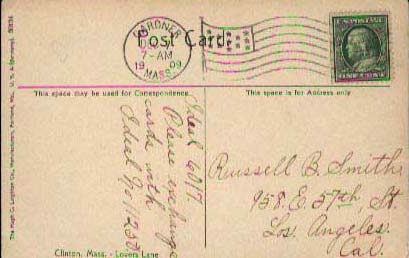 Post Card
GARDNER
7-AM
1909
MASS.
U.S. POSTAGE
ONE CENT
This space may be used for Correspondence
This space is for Address only
Ideal 6017.
Please exchange
cards with
Ideal No 11232.
Russell B. Smith,
958. E. 57th, St.
Los Angeles.
Cal.
Clinton, Mass. - Lovers Lane
The Hugh C. Leighton Co., Manufacturers, Portland, Me., U. S. A.